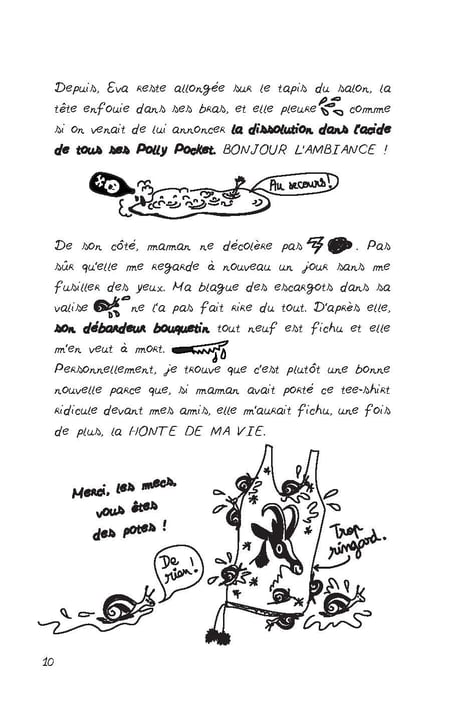 Depuis, Eva reste allongée sur le tapis du salon, la
tête enfouie dans ses bras, et elle pleure comme
si on venait de lui annoncer la dissolution dans l'acide
de tous ses Polly Pocket. BONJOUR L'AMBIANCE !
Au secours !
De son côté, maman ne décolère pas . Pas
sûr qu'elle me regarde à nouveau un jour sans me
fusiller des yeux. Ma blague des escargots dans sa
valise ne l'a pas fait rire du tout. D'après elle,
son débardeur bouquetin tout neuf est fichu et elle
m'en veut à mort.
Personnellement, je trouve que c'est plutôt une bonne
nouvelle parce que, si maman avait porté ce tee-shirt
ridicule devant mes amis, elle m'aurait fichu, une fois
de plus, la HONTE DE MA VIE.
Merci, les mecs,
vous êtes
des potes !
De
rien !
Trop
ringard.
10